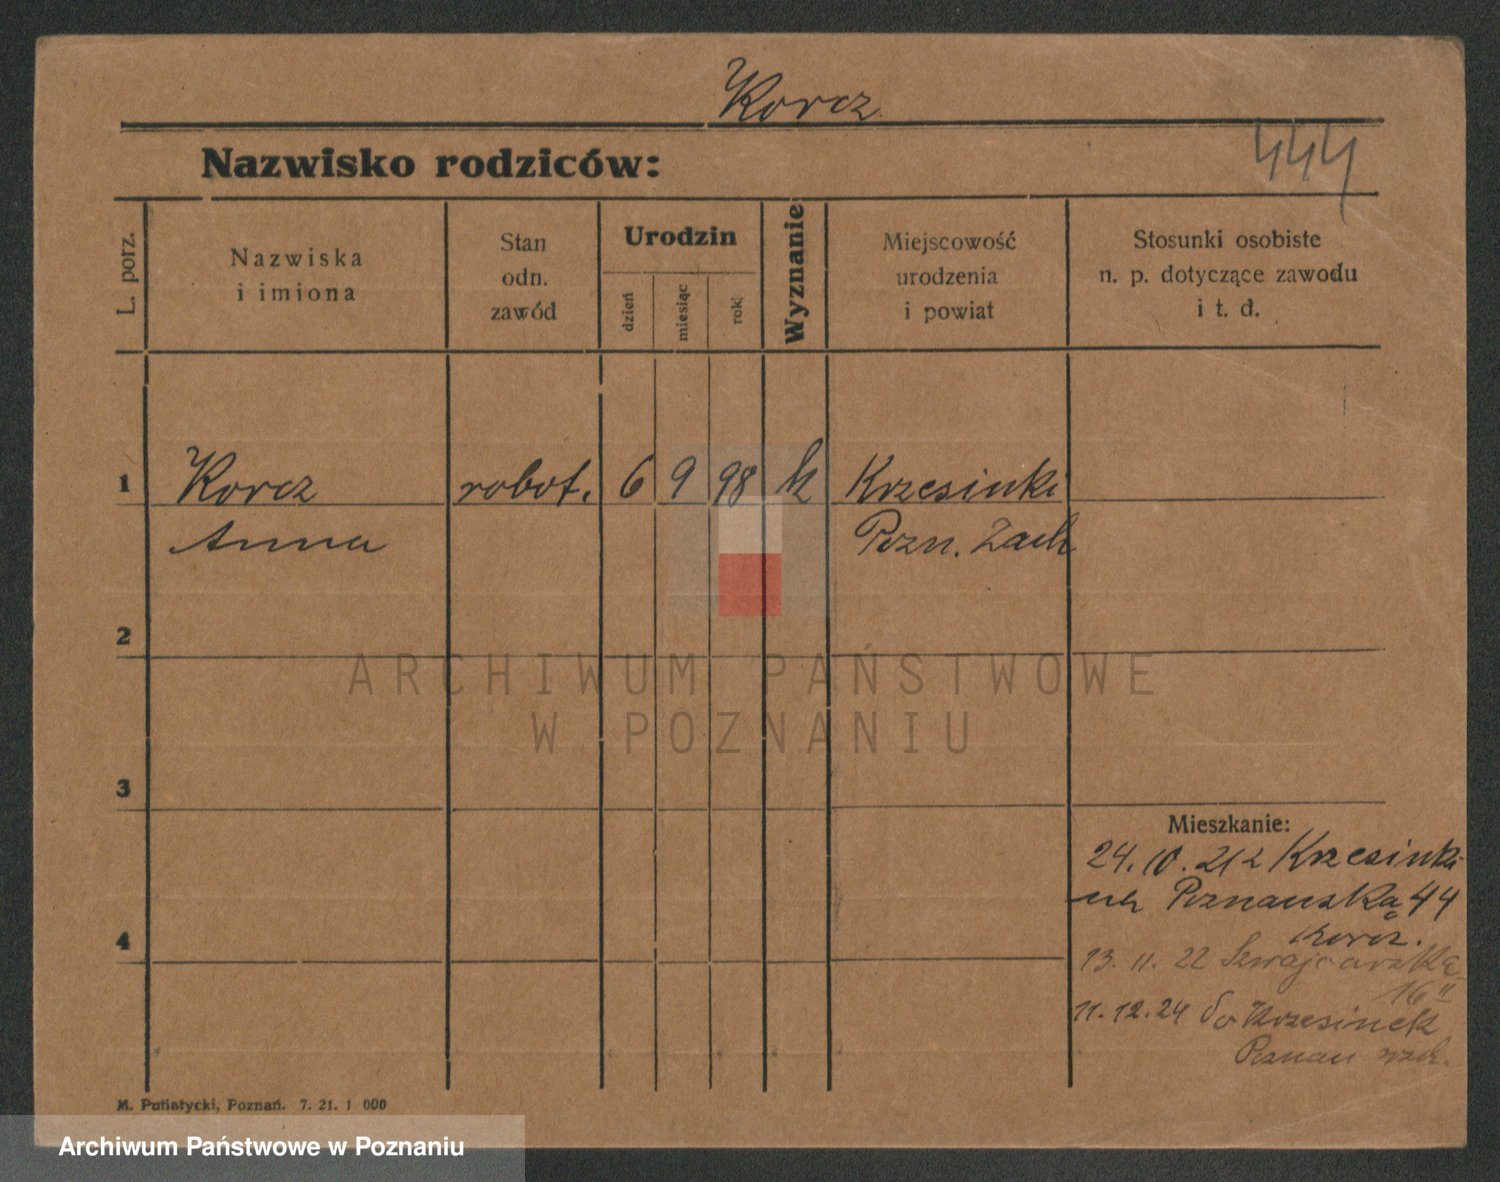 Korcz
444
Nazwisko rodziców:
L. porz.
Nazwiska
i imiona
Stan
odn.
zawód
Urodzin
dzień
miesiąc
rok
Wyznanie
Miejscowość
urodzenia
i powiat
Stosunki osobiste
n. p. dotyczące zawodu
i t. d.
1 Korcz robot. 6 9 98 k Krzesinki
Anna Pozn. Zach
2
ARCHIWUM PAŃSTWOWE
W POZNANIU
3
Mieszkanie:
24. 10. 21 z Krzesinki
Poznańska 44
Korcz.
4
13. 11. 22 Szwajcarska
16 II
11. 12. 24 do Krzesinek
Poznań
M. Putiatycki, Poznań. 7. 21. 1 000
Archiwum Państwowe w Poznaniu